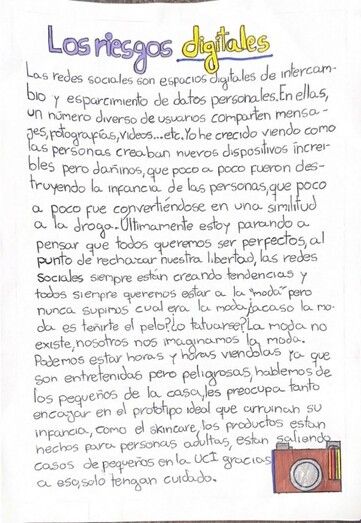 Los riesgos digitales
Las redes sociales son espacios digitales de intercam-
bio y esparcimiento de datos personales. En ellas,
un número diverso de usuarios comparten mensa-
jes, fotografías, videos...etc. Yo he crecido viendo como
las personas creaban nuevos dispositivos increi-
bles pero dañinos, que poco a poco fueron des-
truyendo la infancia de las personas, que poco
a poco fue convirtiéndose en una similitud
a la droga. Últimamente estoy parando a
pensar que todos queremos ser perfectos, al
punto de rechazar nuestra libertad, las redes
sociales siempre están creando tendencias y
todos siempre queremos estar a la "moda" pero
nunca supimos cual era la moda ¿acaso la mo-
da es teñirte el pelo? ¿o tatuarse? La moda no
existe, nosotros nos imaginamos la moda.
Podemos estar horas y horas viendolas ya que
son entretenidas pero peligrosas, hablemos de
los pequeños de la casa, les preocupa tanto
encajar en el prototipo ideal que arruinan su
infancia, como el skincare, los productos estan
hechos para personas adultas, estan saliendo
casos de pequeños en la UCI gracias
a eso, solo tengan cuidado.